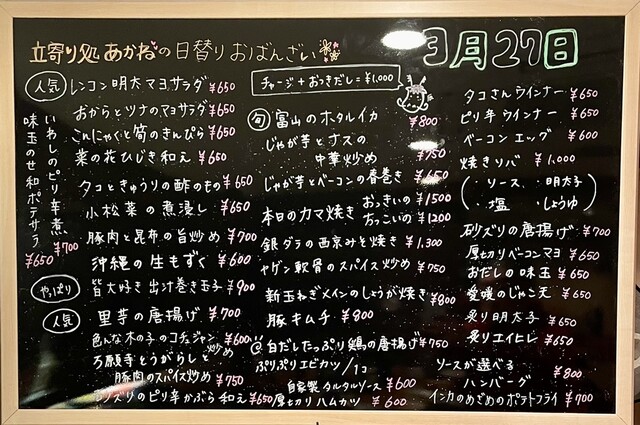 立寄り処 あかねの日替りおばんざい
3月27日
チャージ+おつきだし=¥1,000
人気 レンコン明太マヨサラダ ¥650
おからとツナのマヨサラダ ¥650
こんにゃくと筍のきんぴら ¥650
菜の花ひじき和え ¥650
タコときゅうりの酢のもの ¥650
小松菜の煮浸し ¥650
豚肉と昆布の旨炒め ¥700
沖縄の生もずく ¥600
やっぱり 皆大好き出汁巻き玉子 ¥900
人気 里芋の唐揚げ ¥700
色んな木の子のコチュジャン炒め ¥600
万願寺とうがらしと
豚肉のスパイス炒め ¥750
砂ズリのピリ辛かぶら和え ¥650
いわしのピリ辛煮 ¥700
味玉のせ和ポテサラ ¥650
旬 富山のホタルイカ ¥800
じゃが芋とナスの
中華炒め ¥750
じゃが芋とベーコンの春巻き ¥650
本日のカマ焼き おっきい ¥1500
ちっこいの ¥1200
銀ダラの西京みそ焼き ¥1,300
ヤゲン軟骨のスパイス炒め ¥750
新玉ねぎメインのしょうが焼き ¥800
豚キムチ ¥800
白だしたっぷり鶏の唐揚げ ¥750
ぷりぷりエビカツ/1コ
自家製タルタルソース ¥600
厚切りハムカツ ¥600
タコさんウインナー ¥650
ピリ辛ウインナー ¥650
ベーコンエッグ ¥600
焼きソバ ¥1,000
(・ソース ・明太子
・塩 ・しょうゆ)
砂ズリの唐揚げ ¥700
厚切りベーコンマヨ ¥650
おだしの味玉 ¥650
愛媛のじゃこ天 ¥650
炙り明太子 ¥650
炙りエイヒレ ¥650
ソースが選べる
ハンバーグ ¥800
インカのめざめのポテトフライ ¥700